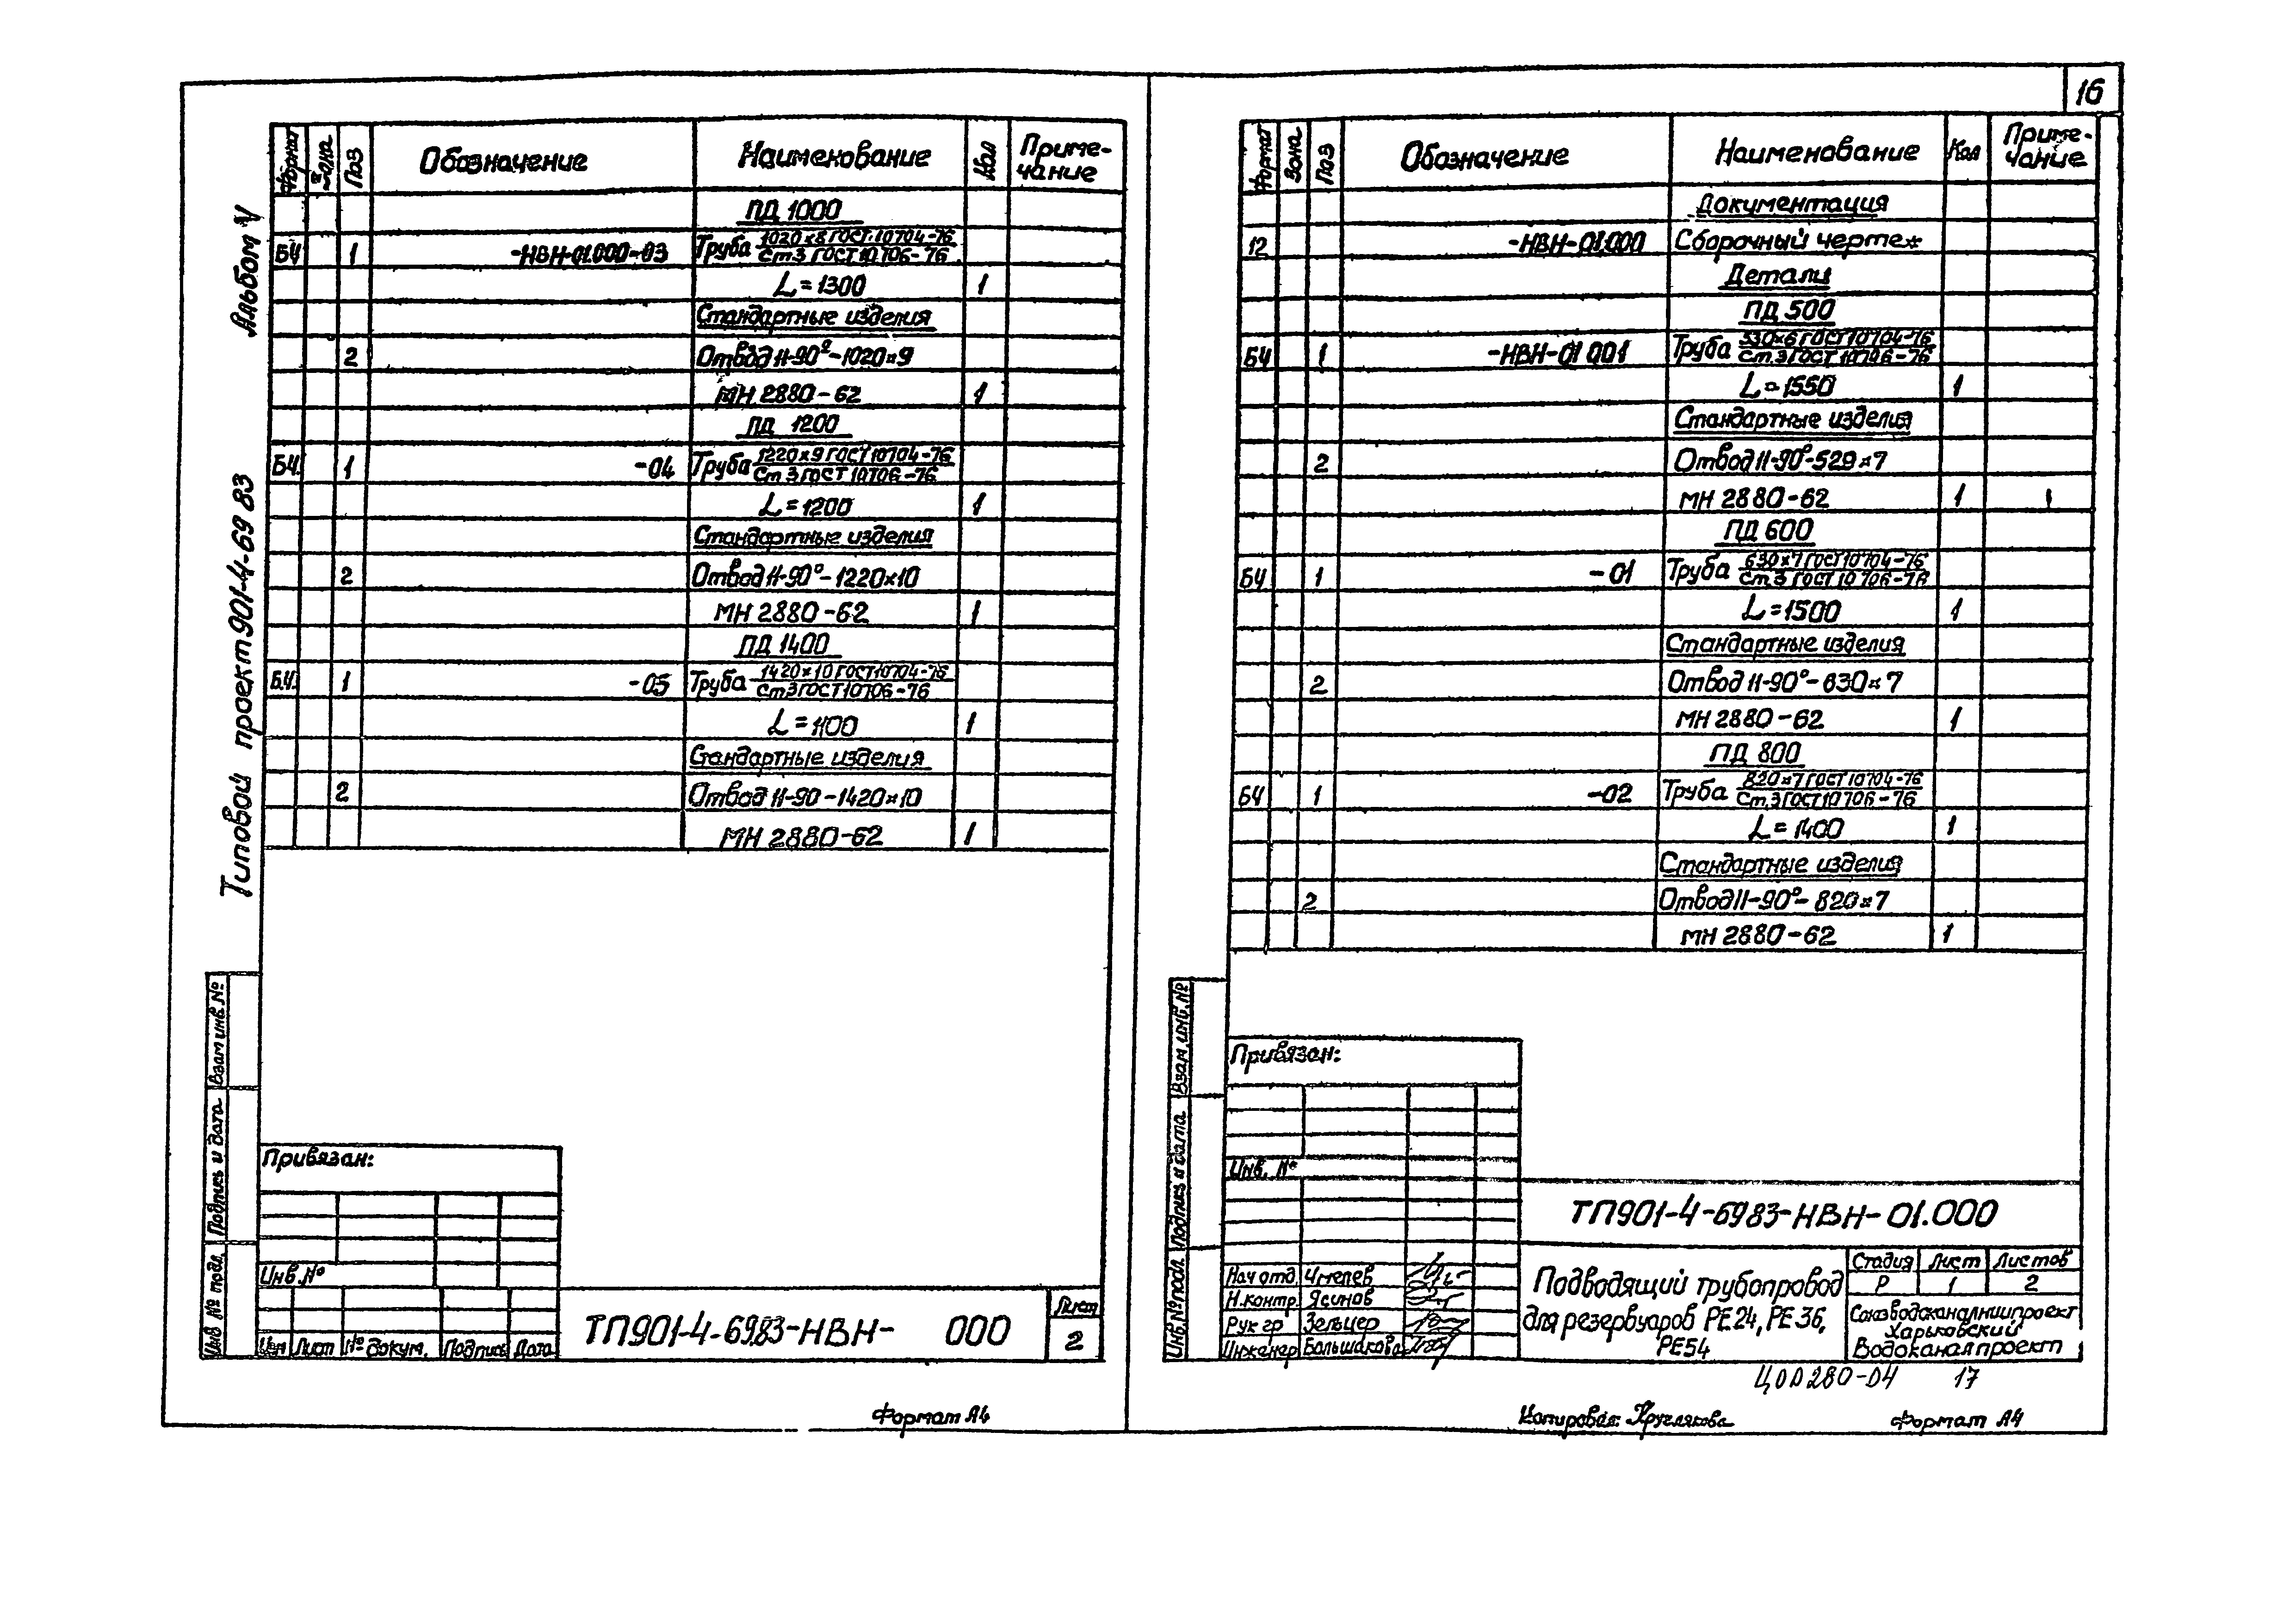 16
Альбом V
Типовой проект 901-4-69 83
Формат Зона Поз Обозначение Наименование Кол Приме-
чание
ПД 1000
БЧ 1 -НВН-01.000-03 Труба 1020×8 ГОСТ 10704-76
Ст.3 ГОСТ 10706-76
L=1300 1
Стандартные изделия
2 Отвод II-90°-1020×9
МН 2880-62 1
ПД 1200
БЧ. 1 -04 Труба 1220×9 ГОСТ 10704-76
Ст 3 ГОСТ 10706-76
L=1200 1
Стандартные изделия
2 Отвод II-90°-1220×10
МН 2880-62 1
ПД 1400
БЧ. 1 -05 Труба 1420×10 ГОСТ 10704-76
Ст 3 ГОСТ 10706-76
L=1100 1
Стандартные изделия
2 Отвод II-90-1420×10
МН 2880-62 1
Взам инв. №
Подпись и дата
Инв № подл.
Привязан:
Инв. №
Изм Лист № докум. Подпись Дата
ТП901-4-6983-НВН- 000
Лист
2
Формат А4
Формат Зона Поз Обозначение Наименование Кол Приме-
чание
Документация
12 -НВН-01.000 Сборочный чертеж
Детали
ПД 500
БЧ 1 -НВН-01 001 Труба 530×6 ГОСТ 10704-76
Ст.3 ГОСТ 10706-76
L=1550 1
Стандартные изделия
2 Отвод II-90°-529×7
МН 2880-62 1
ПД 600
БЧ 1 -01 Труба 630×7 ГОСТ 10704-76
Ст 3 ГОСТ 10706-76
L=1500 1
Стандартные изделия
2 Отвод II-90°-630×7
МН 2880-62 1
ПД 800
БЧ 1 -02 Труба 820×7 ГОСТ 10704-76
Ст.3 ГОСТ 10706-76
L=1400 1
Стандартные изделия
2 Отвод II-90°-820×7
МН 2880-62 1
Взам. инв. №
Подпись и дата
Инв. № подл.
Привязан:
Инв. №
Нач отд.
Н.контр. Ясинов
Рук гр Зельцер
Инженер Большакова
ТП901-4-6983-НВН-01.000
Подводящий трубопровод
для резервуаров РЕ24, РЕ36,
РЕ54
Стадия Лист Листов
Р 1 2
Союзводоканалниипроект
Харьковский
Водоканалпроект
17
Копировал: Круглякова
Формат А4